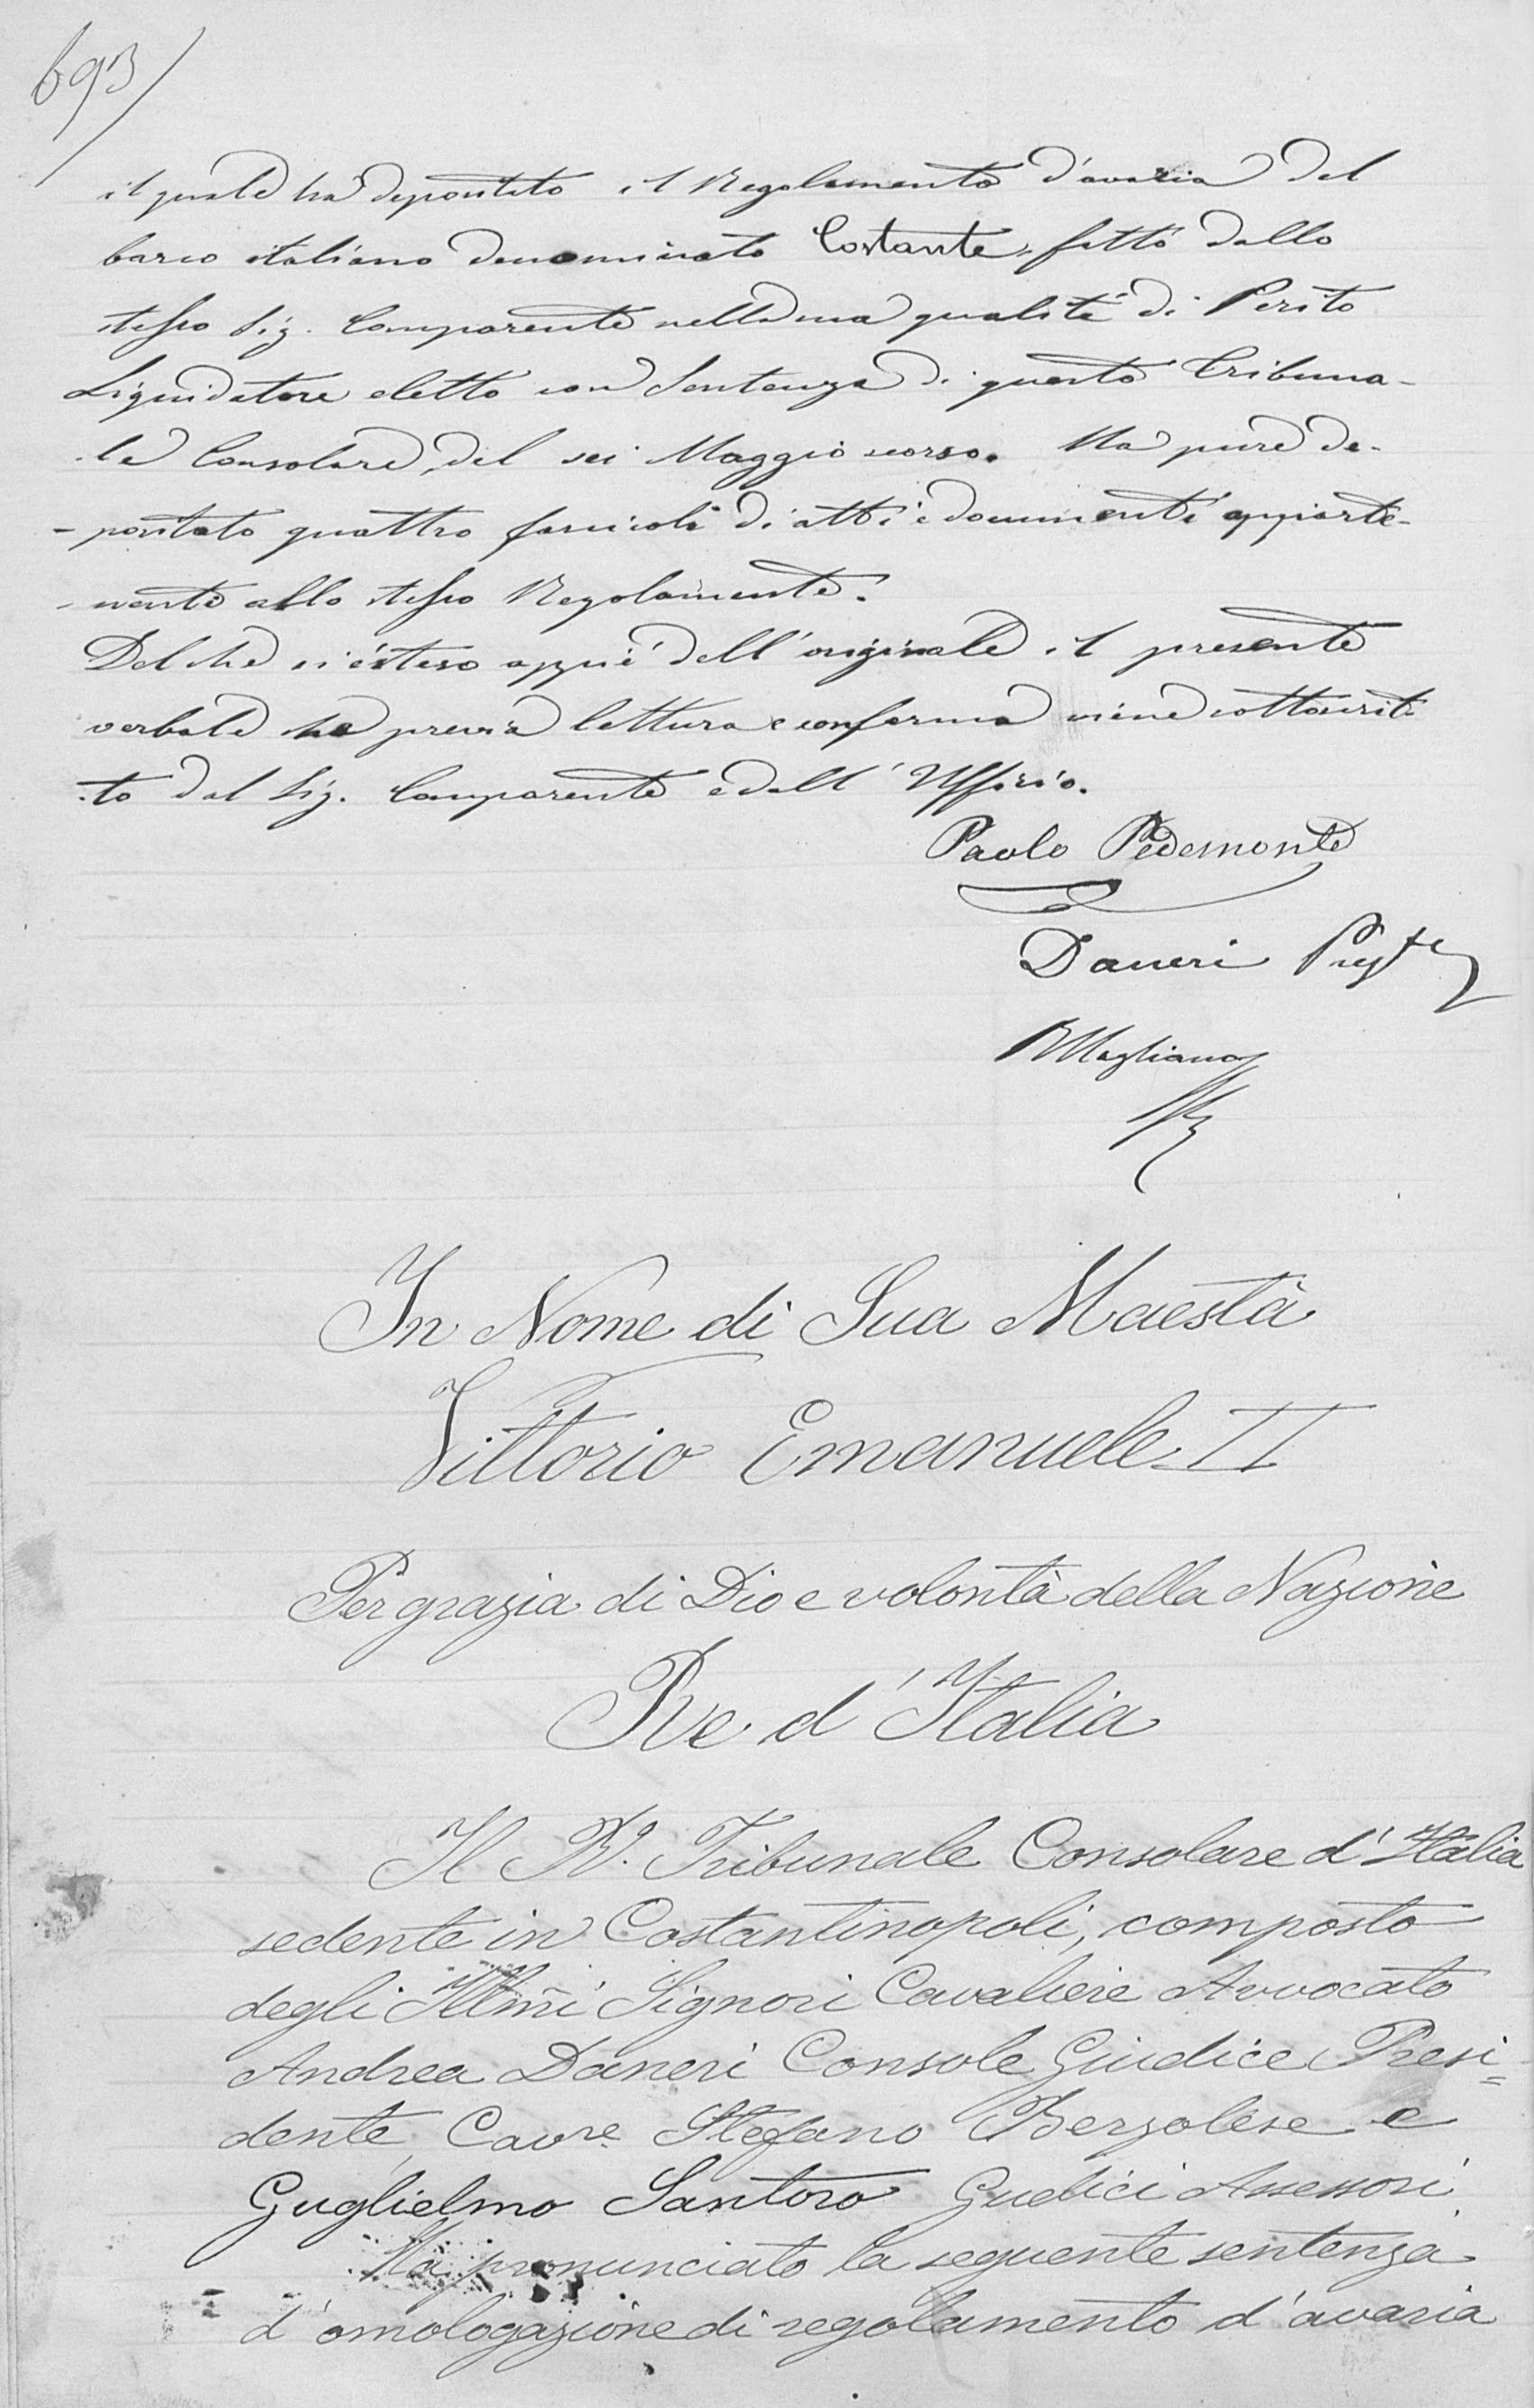 693/
il quale ha depositato il Regolamento d'avaria del
barco italiano denominato Costante, fatto dallo
stesso Sig. Comparente nella sua qualità di Perito
Liquidatore eletto con Sentenza di questo Tribuna-
-le Consolare, del sei Maggio scorso. Ha pure de-
-positato quattro fascicoli di atti e documenti apparte-
-nenti allo stesso Regolamento.
Del che si è esteso appiè dell'originale il presente
verbale che previa lettura e conferma viene sottoscrit-
-to dal Sig. Comparente e dall'Uffizio.
Paolo Pedemonte
Daneri
Magliano
In Nome di Sua Maestà
Vittorio Emanuele II
Per grazia di Dio e volontà della Nazione
Re d'Italia
Il R. Tribunale Consolare d'Italia
sedente in Costantinopoli, composto
degli Illmi Signori Cavaliere Avvocato
Andrea Daneri Console Giudice Presi=
dente, Cavre Stefano Berzolese e
Guglielmo Santoro Giudici Assessori
Ha pronunciato la seguente sentenza
d'omologazione di regolamento d'avaria